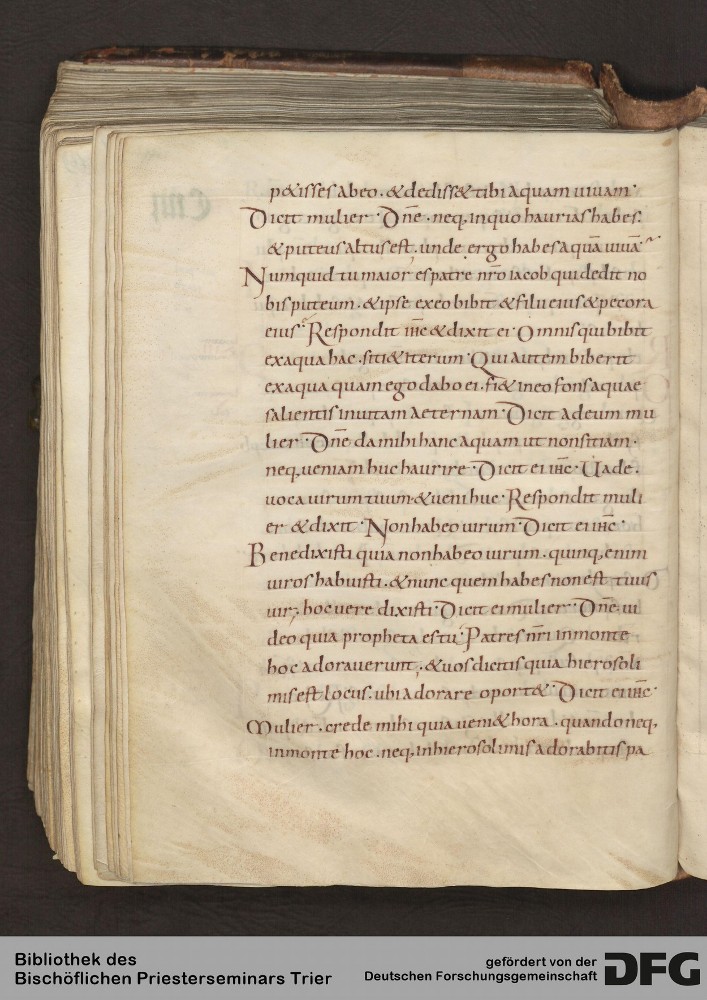 p&isses abeo · & dediss& tibi aquam uiuam ·
Dicit mulier · Dn̄e · neq; inquo hauriashabes ·
& puteusaltusest · unde ergo habesaquā uiuā
Numquid tu maior espatre nr̄o iacob quidedit no
bisputeum · & ipse exeobibit & filii eius & pecora
eius · Respondit ih̄c & dixit ei · Omnisquibibit
exaqua hac · siti& iterum · Qui autem biberit
exaqua quam egodabo ei · fi& ineo fonsaquae
salientisinuitam aeternam · Dicit adeum mu
lier · Dn̄e da mihi hanc aquam ut nonsitiam ·
neq; ueniam huc haurire · Dicit ei ih̄c · Uade ·
uoca uirum tuum · & ueni huc · Respondit muli
er & dixit · Nonhabeo uirum · Dicit ei ih̄c ·
Benedixisti quia nonhabeo uirum · quinq; enim
uiros habuisti · & nunc quem habesnonest tuus
uir; hocuere dixisti · Dicit eimulier · Dn̄e · ui
deo quia propheta estu · Patres nr̄i inmonte
hoc adorauerunt · & uosdicitisquia hierosoli
misest locus · ubi adorare oport& · Dicit ei ih̄c ·
Mulier · crede mihi quia ueni& hora · quandoneq;
inmonte hoc · neq; inhierosolimis adorabitis pa
Bibliothek des
Bischöflichen Priesterseminars Trier
gefördert von der
Deutschen Forschungsgemeinschaft
DFG